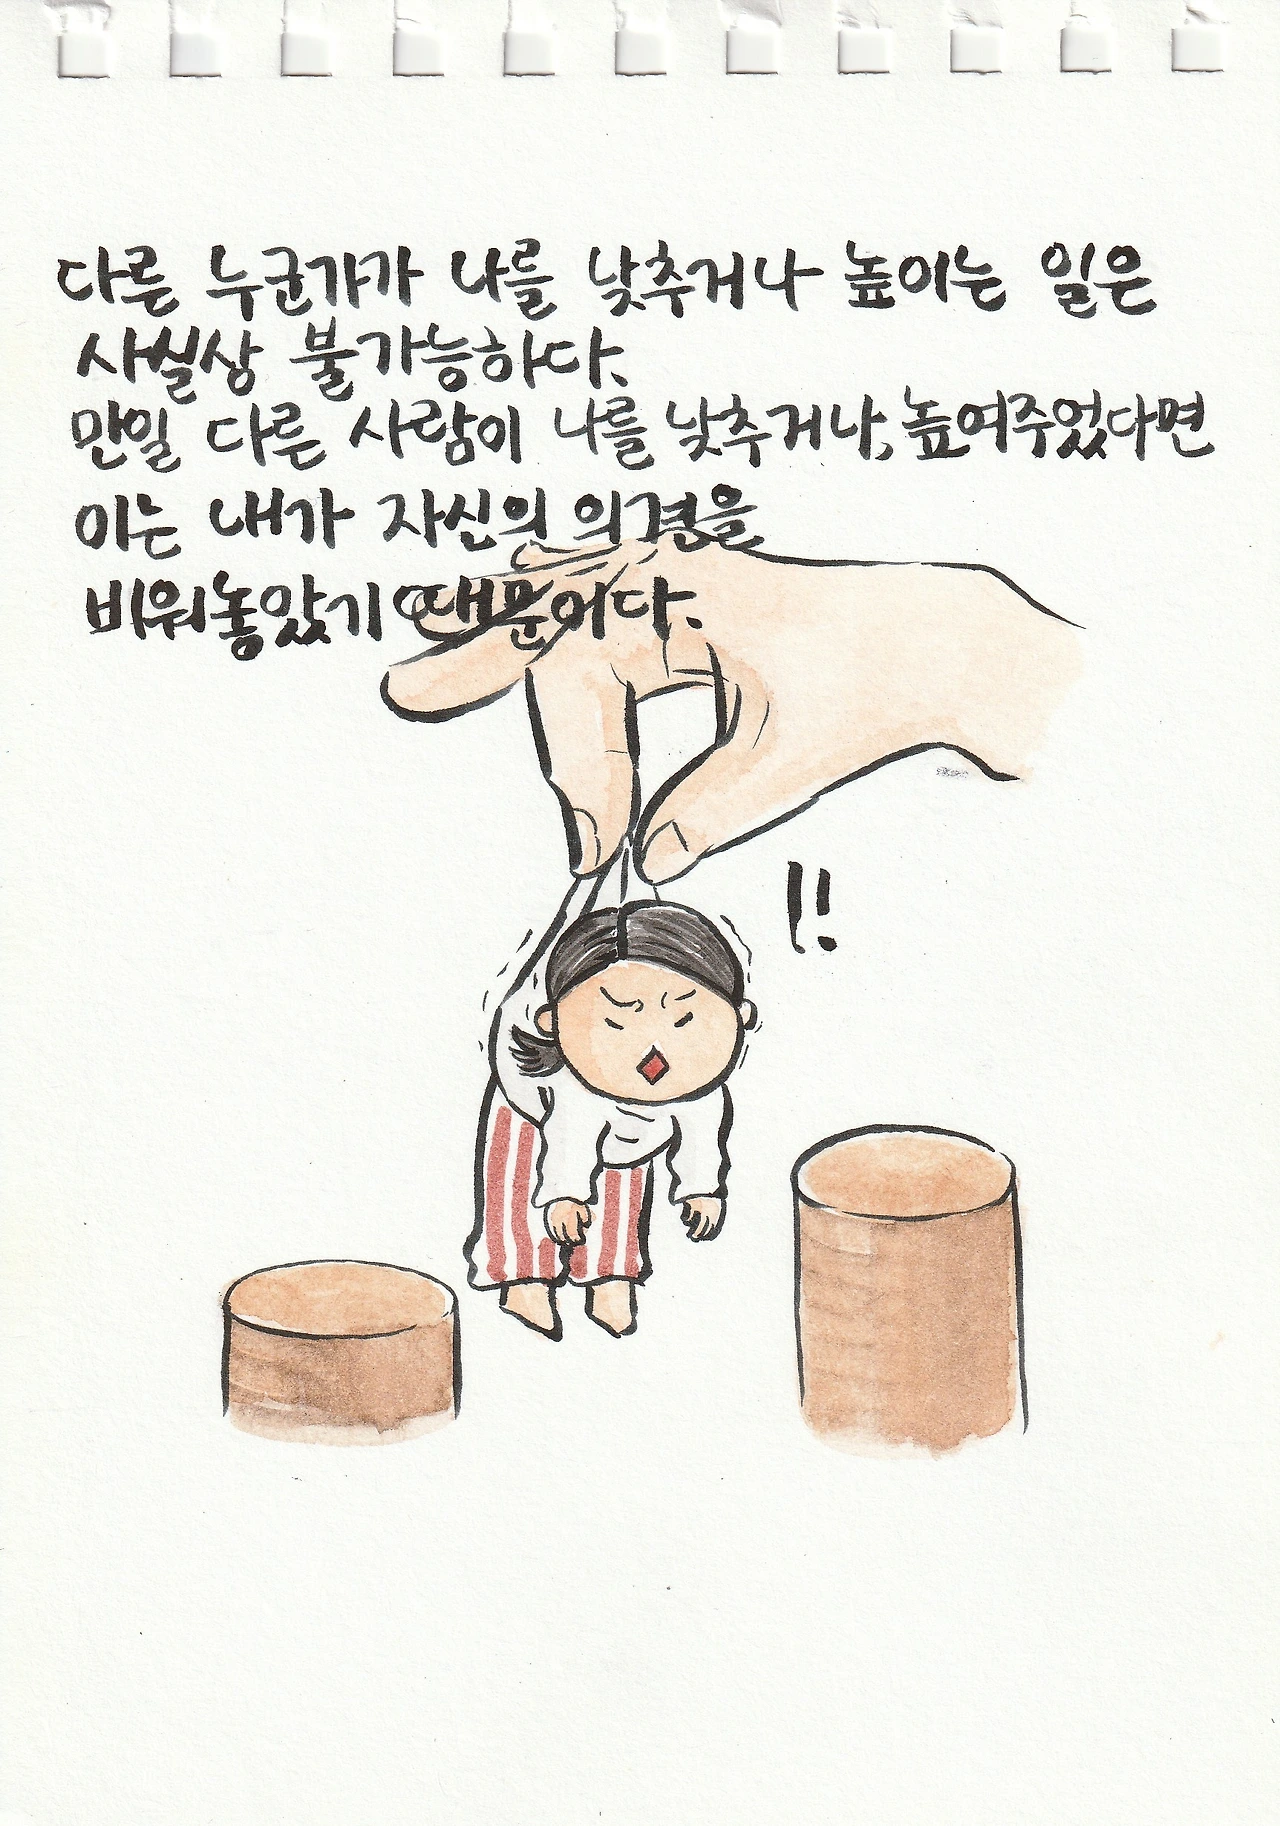 다른 누군가가 나를 낮추거나 높이는 일은
사실상 불가능하다.
만일 다른 사람이 나를 낮추거나, 높여주었다면
이는 내가 자신의 의견을
비워놓았기 때문이다.
!!